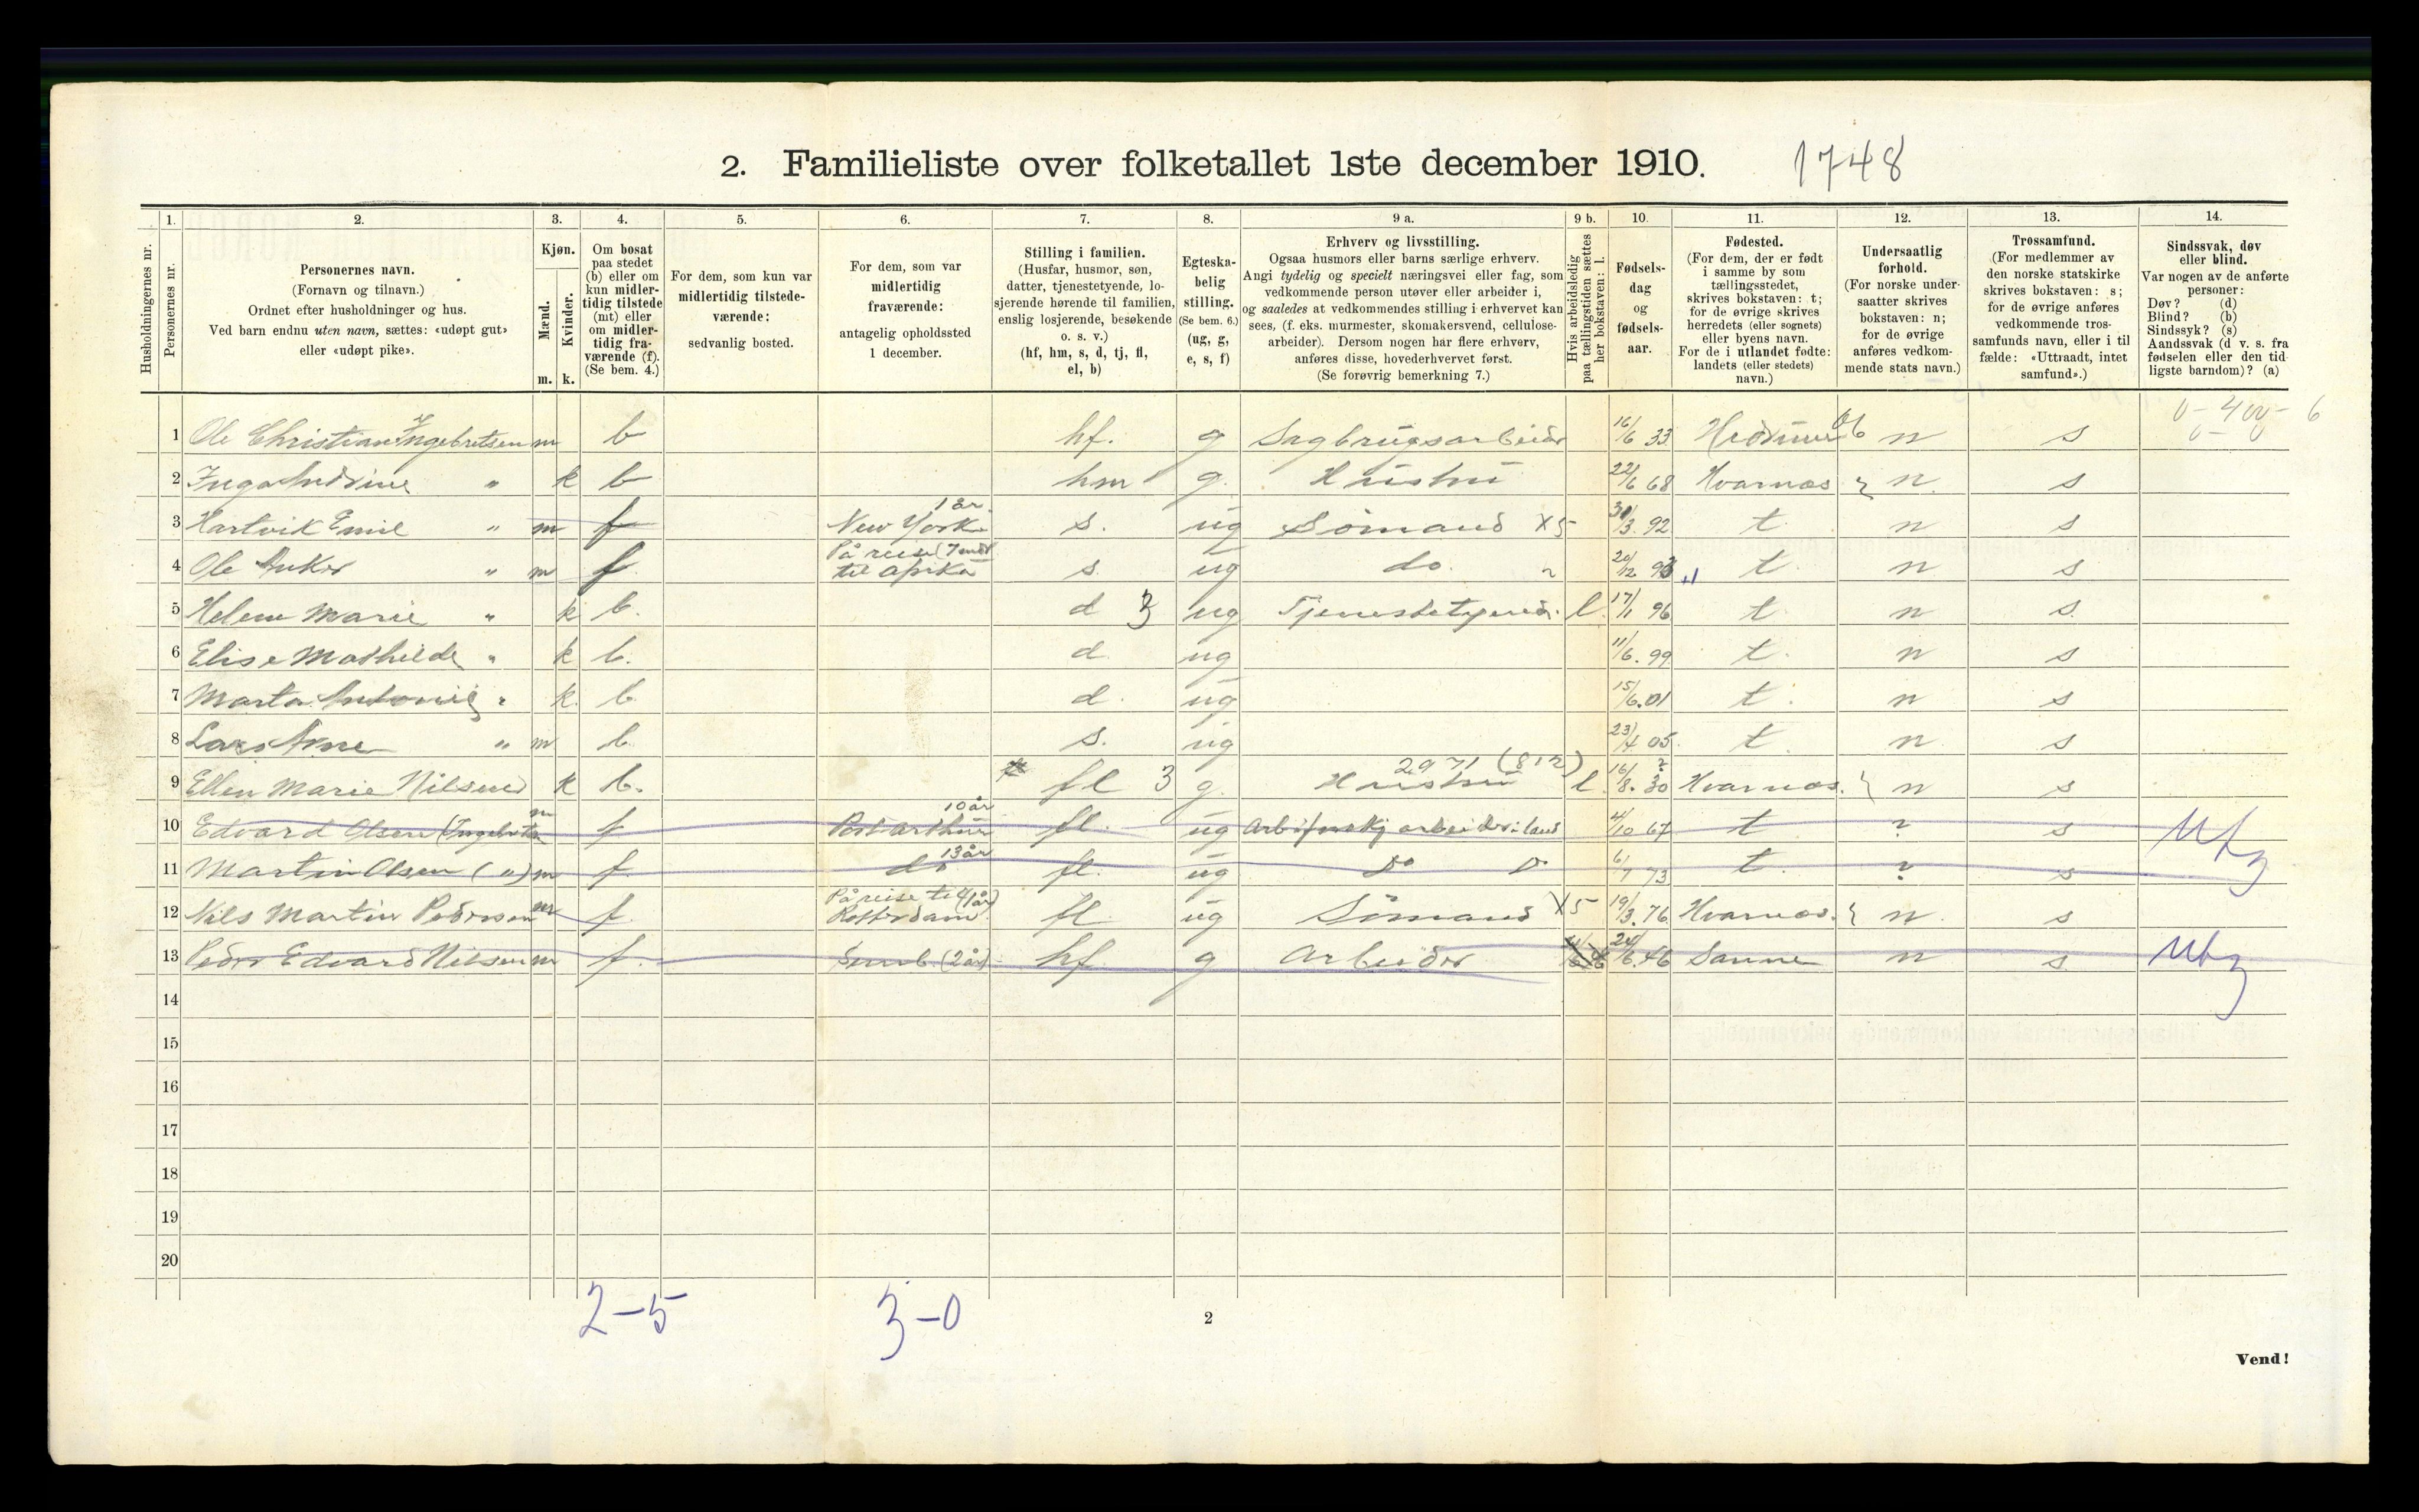 2. Familieliste over folketallet 1ste december 1910. 1748
Husholdningernes nr.
1. Personernes nr.
2. Personernes navn.
(Fornavn og tilnavn.)
Ordnet efter husholdninger og hus.
Ved barn endnu uten navn, sættes: «udøpt gut»
eller «udøpt pike».
3. Kjøn.
Mænd. m.
Kvinder. k.
4. Om bosat
paa stedet
(b) eller om
kun midler-
tidig tilstede
(mt) eller
om midler-
tidig fra-
værende (f).
(Se bem. 4.)
5. For dem, som kun var
midlertidig tilstede-
værende:
sedvanlig bosted.
6. For dem, som var
midlertidig
fraværende:
antagelig opholdssted
1 december.
7. Stilling i familien.
(Husfar, husmor, søn,
datter, tjenestetyende, lo-
sjerende hørende til familien,
enslig losjerende, besøkende
o. s. v.)
(hf, hm, s, d, tj, fl,
el, b)
8. Egteska-
belig
stilling.
(Se bem. 6.)
(ug, g,
e, s, f)
9 a. Erhverv og livsstilling.
Ogsaa husmors eller barns særlige erhverv.
Angi tydelig og specielt næringsvei eller fag, som
vedkommende person utøver eller arbeider i,
og saaledes at vedkommendes stilling i erhvervet kan
sees, (f. eks. murmester, skomakersvend, cellulose-
arbeider). Dersom nogen har flere erhverv,
anføres disse, hovederhvervet først.
(Se forøvrig bemerkning 7.)
9 b. Hvis arbeidsledig
paa tællingstiden sættes
her bokstaven: l.
10. Fødsels-
dag
og
fødsels-
aar.
11. Fødested.
(For dem, der er født
i samme by som
tællingsstedet,
skrives bokstaven: t;
for de øvrige skrives
herredets (eller sognets)
eller byens navn.
For de i utlandet fødte:
landets (eller stedets)
navn.)
12. Undersaatlig
forhold.
(For norske under-
saatter skrives
bokstaven: n;
for de øvrige
anføres vedkom-
mende stats navn.)
13. Trossamfund.
(For medlemmer av
den norske statskirke
skrives bokstaven: s;
for de øvrige anføres
vedkommende tros-
samfunds navn, eller i til
fælde: «Uttraadt, intet
samfund».)
14. Sindssvak, døv
eller blind.
Var nogen av de anførte
personer:
Døv? (d)
Blind? (b)
Sindssyk? (s)
Aandssvak (d v. s. fra
fødselen eller den tid-
ligste barndom)? (a)
1 Ole Christian Ingebretsen m b hf. g Sagbrugsarbeider 16/6 33 n s
2 Inga Andrine " k b hm g. Hustru 22/6 68 Hvarnæs n. s
3 Hartvik Emil " m f New York 1 år s. ug Sømand X5 30/3. 92 t. n s
4 Ole Anker " m f På reise til Afrika s. ug do. 20/12 93 t. n s
5 Helene Marie " k b. d 3 ug Tjenestetyende. l. 17/1 96 t. n s.
6 Elise Mathilde " k b. d. ug 11/6. 99 t. n s
7 Marta Antonie " k. b. d. ug 15/6. 01 t. n s
8 Lars Arne " m b. s. ug 23/4 05. t. n s
9 Ellen Marie Nilsen k b. fl 3 g. Hustru 2971 (812) l. 16/8. 30 ? Hvarnæs. n s
10 Edvard Olsen (Ingebretsen m f Port Arthur 10 år fl. ug arbeider i land 4/10 67 t ? s
11 Martin Olsen (") m f. do 13 år fl. ug Do Do 6/7 73 t. ? s
12 Nils Martin Pedersen m f. På reise til Rotterdam fl. ug Sømand X5 19/3. 76 Hvarnæs. n. s
13 Peder Edvard Nilsen m f. (2 år) hf g Arbeider 24/6. 46 Sanne n s
14
15
16
17
18
19
20
2-5 3-0
2
Vend!